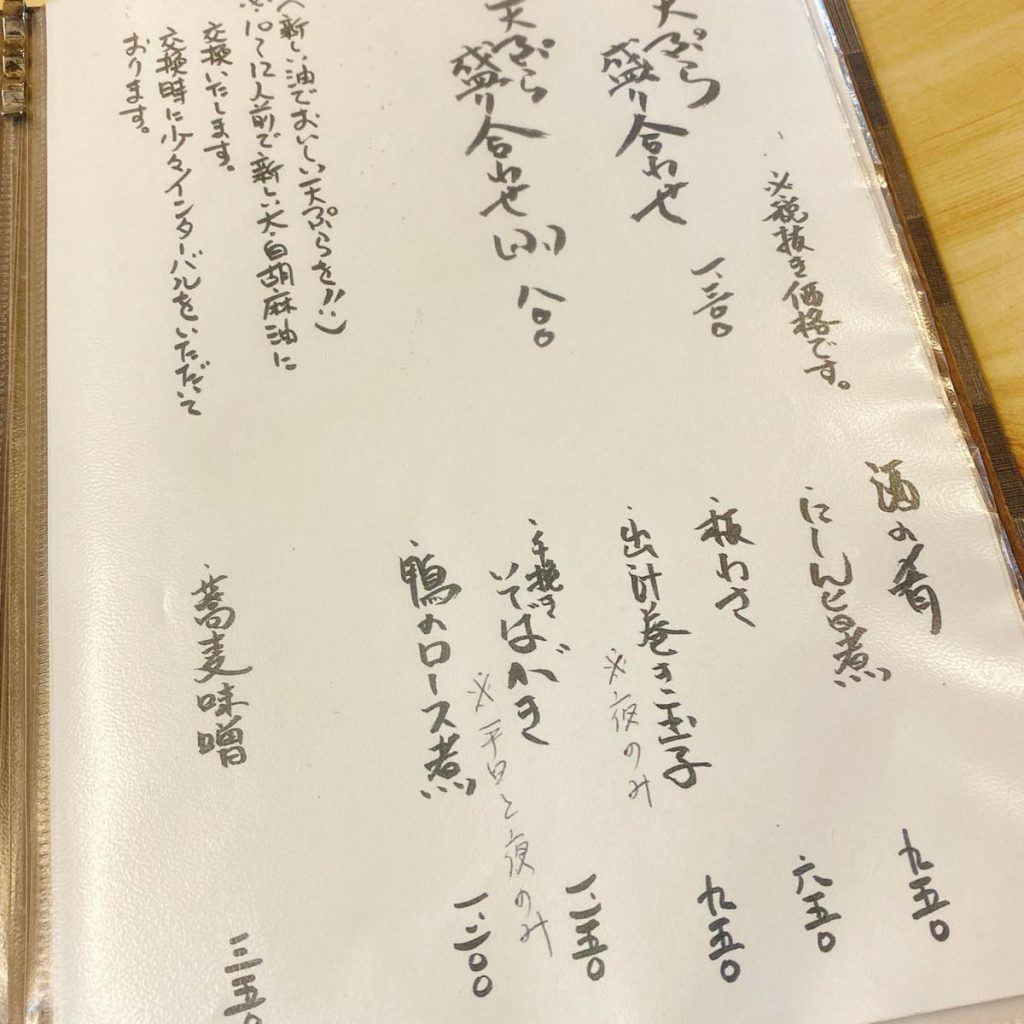 ※税抜き価格です。
天ぷら盛り合わせ
天ぷら盛り合わせ(小) 八〇〇
(新しい油でおいしい天ぷらを!!)
※10〜12人前で新しい太白胡麻油に
交換いたします。
交換時に少々インターバルをいただいて
おります。
酒の肴
・にしん旨煮 九五〇
・板わさ 六五〇
・出汁巻き玉子 九五〇
※夜のみ
・手挽きそばがき
※平日と夜のみ
・鴨のロース煮 一、二〇〇
・蕎麦味噌 三五〇